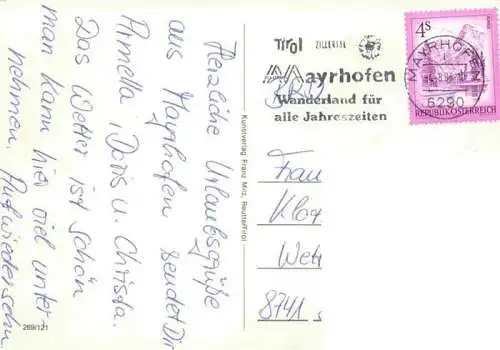 Herzliche Urlaubsgrüße
aus Mayrhofen sendet Dir
Armella, Doris u. Christa.
Das Wetter ist schön
man kann hier viel unter-
nehmen. Aufwiedersehn
269/121
Kunstverlag Franz Milz, Reutte/Tirol
Tirol ZILLERTAL
Mayrhofen
Wanderland für
alle Jahreszeiten
4S
MAYRHOFEN
6290
REPUBLIK ÖSTERREICH
Frau
8741